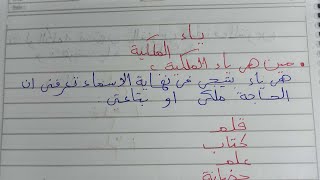 ياء
الملكية
• مين هي ياء الملكية ؟
هي ياء بتيجي في نهاية الاسماء تعرفني ان
الحاجة ملكي او بتاعتي
قلم
كتاب
علم
حضانة